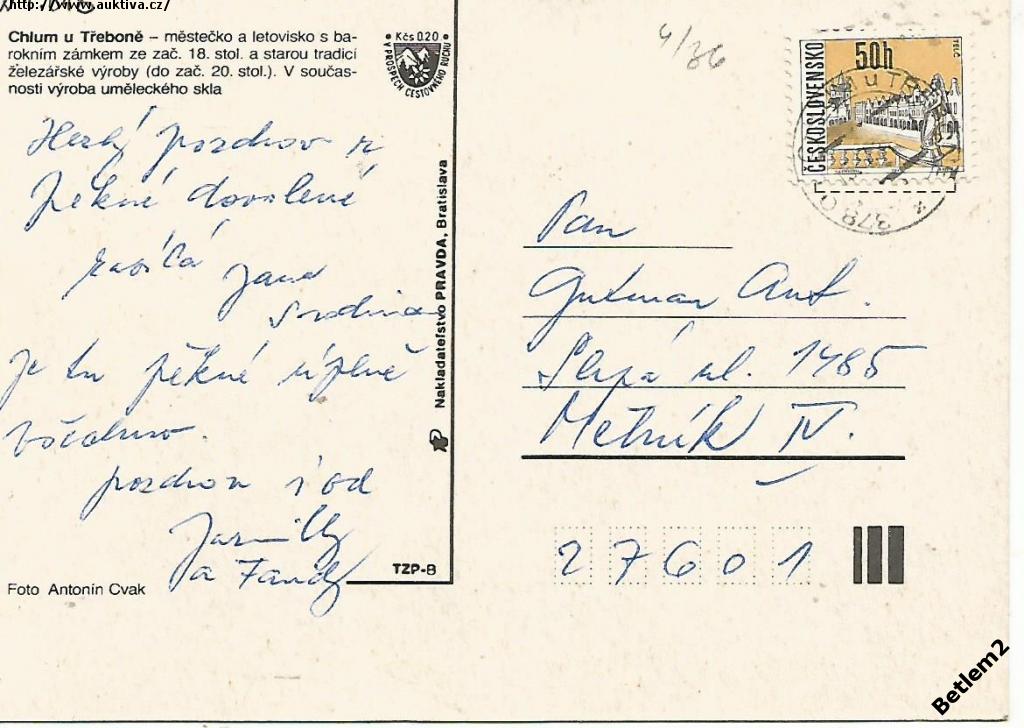 http://www.auktiva.cz/
Chlum u Třeboně – městečko a letovisko s ba-
rokním zámkem ze zač. 18. stol. a starou tradicí
železářské výroby (do zač. 20. stol.). V součas-
nosti výroba uměleckého skla
• Kčs 0.20 •
V PROSPĚCH CESTOVNÉHO RUCHU
4/86
ČESKOSLOVENSKO
50h
TELČ
Hezký pozdrav z
pěkné dovolené
Jana
S rodinou
Je tu pěkně úplně
pozdrav i od
Jarmilky
a Fandy
Nakladateľstvo PRAVDA, Bratislava
TZP-8
Foto Antonín Cvak
Pan
Gutman Ant.
ul. 1485
Mělník IV.
27601
Betlem2